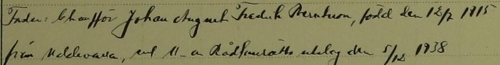 Fader: Chaufför Johan August Fredrik Berntson, född den 12/7 1915
från Uddevalla, enl U-a Rådhusrätts utslag den 5/12 1938